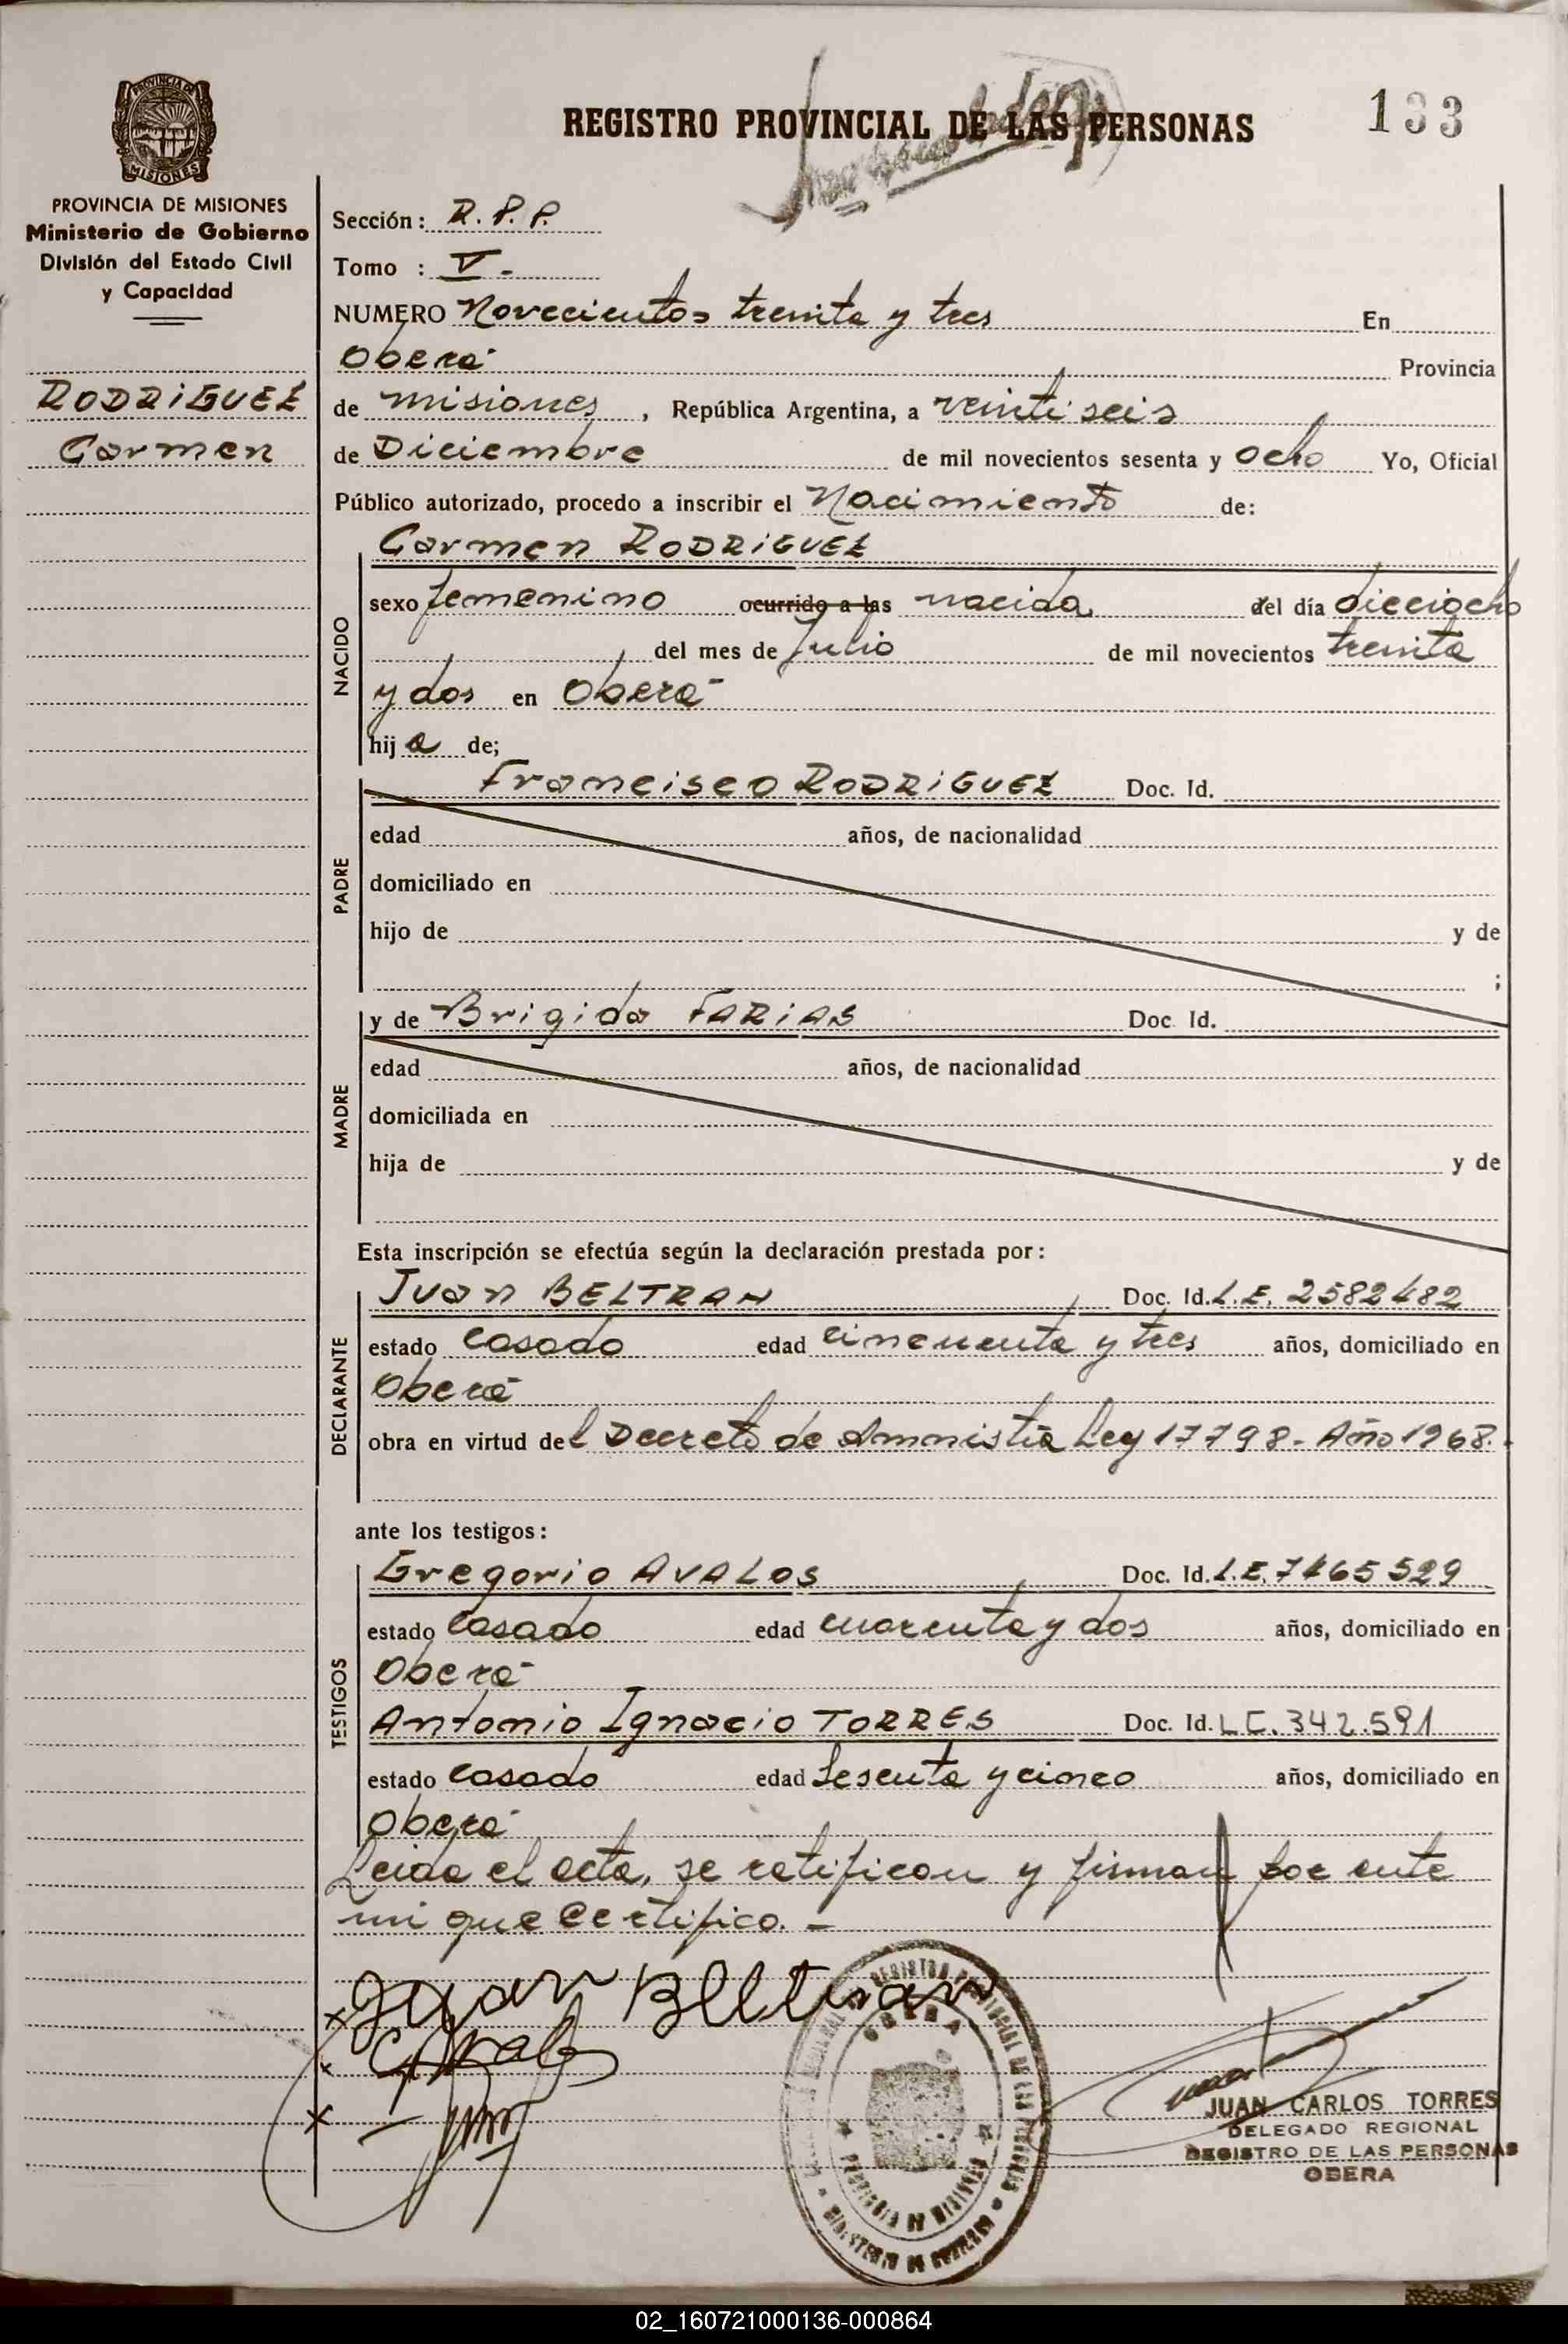 REGISTRO PROVINCIAL DE LAS PERSONAS
133
PROVINCIA DE MISIONES
Ministerio de Gobierno
División del Estado Civil
y Capacidad
RODRIGUEZ
Carmen
Sección: R.P.P.
Tomo : V.-
NUMERO Novecientos treinta y tres En
Oberá Provincia
de misiones, República Argentina, a veintiseis
de Diciembre de mil novecientos sesenta y ocho Yo, Oficial
Público autorizado, procedo a inscribir el Nacimiento de:
NACIDO
Carmen RODRIGUEZ
sexo femenino ocurrido a las nacida del día dieciocho
del mes de Julio de mil novecientos treinta
y dos en Oberá
hija de;
PADRE
Francisco RODRIGUEZ Doc. Id.
edad años, de nacionalidad
domiciliado en
hijo de y de
;
MADRE
y de Brigida FARIAS Doc. Id.
edad años, de nacionalidad
domiciliada en
hija de y de
Esta inscripción se efectúa según la declaración prestada por:
DECLARANTE
Juan BELTRAN Doc. Id. L.E. 2582482
estado casado edad cincuenta y tres años, domiciliado en
Oberá
obra en virtud del Decreto de Amnistía Ley 17798.- Año 1968.-
ante los testigos:
TESTIGOS
Gregorio AVALOS Doc. Id. L.E. 7465529
estado casado edad cuarenta y dos años, domiciliado en
Oberá
Antonio Ignacio TORRES Doc. Id. L C. 342.591
estado casado edad Sesenta y cinco años, domiciliado en
Oberá
Leida el acta, se ratifican y firman por ante
mi que certifico. -
Juan Belltran
JUAN CARLOS TORRES
DELEGADO REGIONAL
REGISTRO DE LAS PERSONAS
OBERA
OBERA
PROVINCIA DE MISIONES
MINISTERIO DE GOBIERNO
02_160721000136-000864